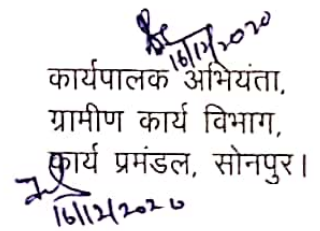 16/12/2020
कार्यपालक अभियंता,
ग्रामीण कार्य विभाग,
कार्य प्रमंडल, सोनपुर।
16/12/2020